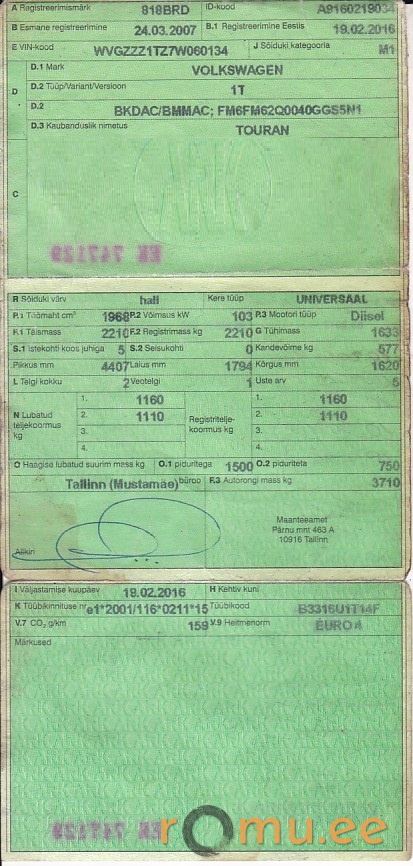 A Registreerimismärk 818BRD ID-kood A9160219034
B Esmane registreerimine 24.03.2007 B.1 Registreerimine Eestis 19.02.2016
E VIN-kood WVGZZZ1TZ7W060134 J Sõiduki kategooria M1
D.1 Mark VOLKSWAGEN
D D.2 Tüüp/Variant/Versioon 1T
D.2 BKDAC/BMMAC; FM6FM62Q0040GGS5N1
D.3 Kaubanduslik nimetus TOURAN
C
EK 747129
R Sõiduki värv hall Kere tüüp UNIVERSAAL
P.1 Töömaht cm³ 1968 P.2 Võimsus kW 103 P.3 Mootori tüüp Diisel
F.1 Täismass 2210 F.2 Registrimass kg 2210 G Tühimass 1633
S.1 Istekohti koos juhiga 5 S.2 Seisukohti 0 Kandevõime kg 577
Pikkus mm 4407 Laius mm 1794 Kõrgus mm 1620
L Telgi kokku 2 Veotelgi 1 Uste arv 5
N Lubatud teljekoormus kg 1. 1160 Registritelje-koormus kg 1. 1160
2. 1110 2. 1110
3. 3.
4. 4.
O Haagise lubatud suurim mass kg O.1 piduritega 1500 O.2 piduriteta 750
Tallinn (Mustamäe) büroo F.3 Autorongi mass kg 3710
Maanteeamet
Pärnu mnt 463 A
10916 Tallinn
Allkiri
I Väljastamise kuupäev 19.02.2016 H Kehtiv kuni
K Tüübikinnituse nr e1*2001/116*0211*15 Tüübikood B3316U1T14F
V.7 CO₂ g/km 159 V.9 Heitmenorm EURO 4
Märkused
EK 747129
romu.ee